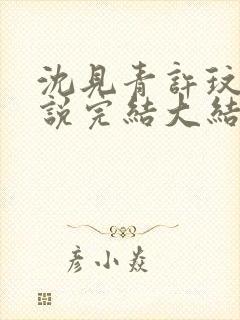 沈見青許玟
說完結大結
彥小焱